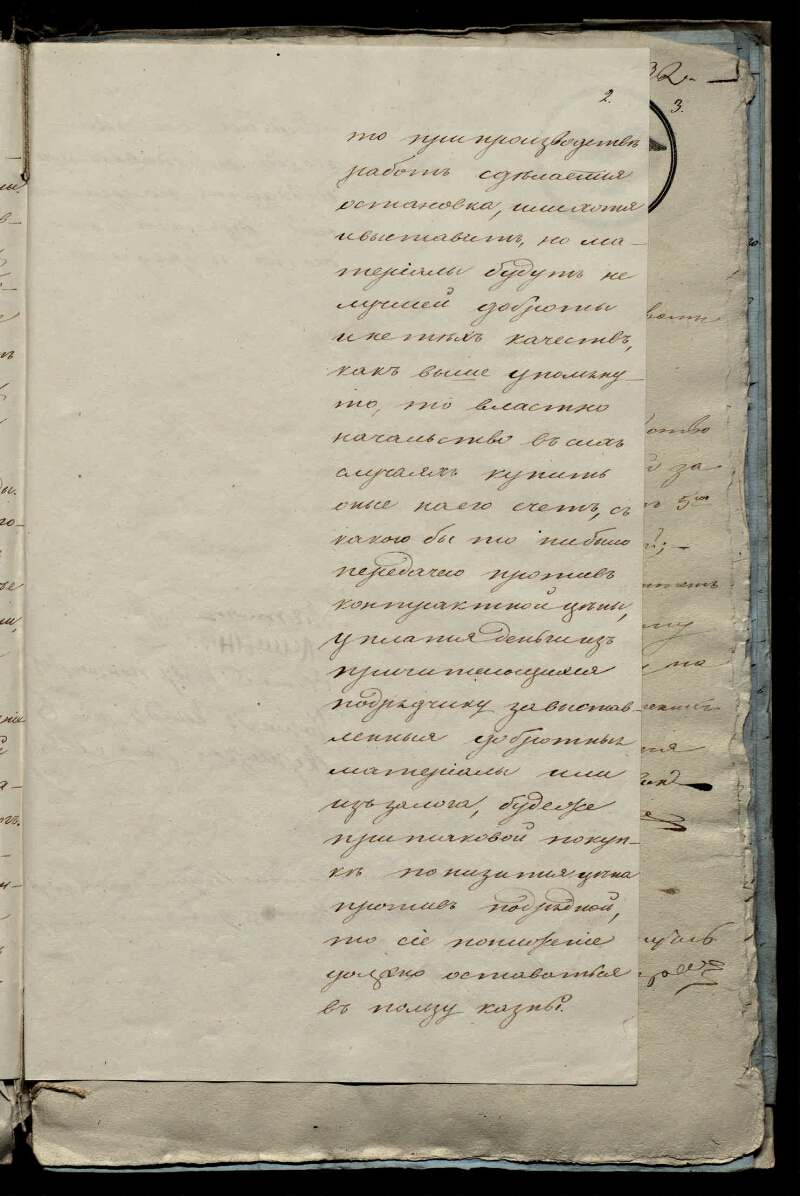 32.
2.
3.
то при производствѣ
работъ сдѣлается
остановка, или хотя
и выставитъ, но ма-
теріялы будутъ не
лучшей доброты
и не тѣхъ качествъ,
какъ выше упомяну-
то, то властно
начальство въ сихъ
случаяхъ купить
оные на его счетъ, съ
какою бы то ни было
передачею противъ
контрактной цѣны,
уплатя деньги изъ
причитающихся
подрядчику за выстав-
ленныя добротныя
матеріялы или
изъ залога, буде же
при таковой покуп-
кѣ понизится цѣна
противъ подрядной,
то сіе пониженіе
должно оставаться
въ пользу казны.